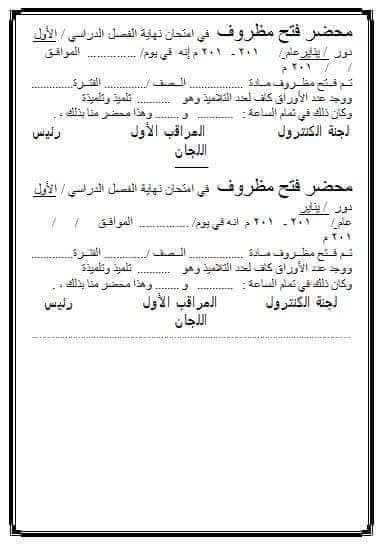 محضر فتح مظروف في امتحان نهاية الفصل الدراسي / الأول
دور / يناير عام / ٢٠١ ـ ٢٠١ م إنه في يوم/ ............... الموافـق
/ / ٢٠١ م
تـم فـتح مظـروف مـادة ................. الـصف /........... الفتـرة..............
ووجد عدد الأوراق كاف لعدد التلاميذ وهو ........... تلميذ وتلميذة
وكان ذلك في تمام الساعة : ............ و ........ وهذا محضر منا بذلك ، .
لجنة الكنترول المراقب الأول رئيس
اللجان
محضر فتح مظروف في امتحان نهاية الفصل الدراسي / الأول
دور / يناير
عام / ٢٠١ - ٢٠١ م انه في يوم/ ............... الموافق / /
٢٠١ م
تـم فـتح مظـروف مـادة ................. الـصف /........... الفتـرة..............
ووجد عدد الأوراق كاف لعدد التلاميذ وهو ........... تلميذ وتلميذة
وكان ذلك في تمام الساعة : ............ و ........ وهذا محضر منا بذلك ، .
لجنة الكنترول المراقب الأول رئيس
اللجان